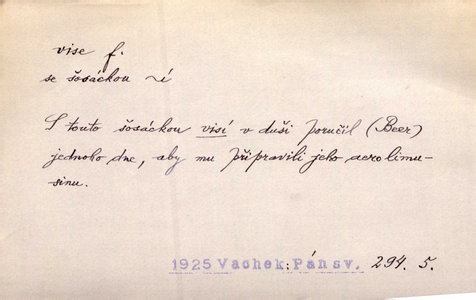 vise f.
se šosáckou ~í
S touto šosáckou visí v duši poručil (Beer)
jednoho dne, aby mu připravili jeho aerolimu-
sinu.
1925 Vachek: Pán sv. 294. 5.